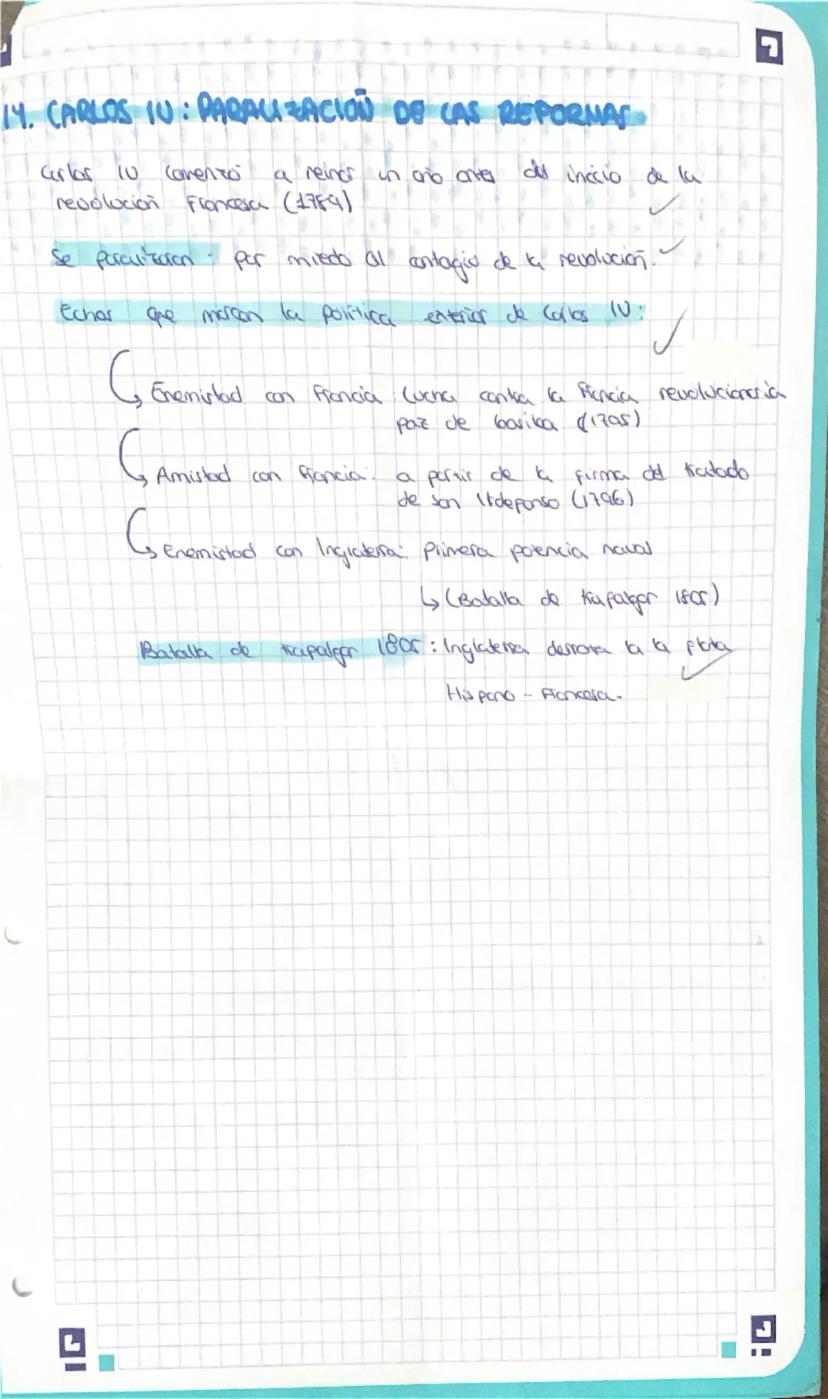 14. CARLOS IV: PARALIZACIÓN DE LAS REFORMAS
Carlos IV comenzó a reinar un año antes del inicio de la
revolución Francesa (1789)
Se paralizaron: por miedo al contagio de la revolución.
Echos que marcan la política exterior de Carlos IV:
Enemistad con Francia: Lucha contra la Francia revolucionaria
paz de basilea (1795)
Amistad con Francia: a partir de la firma del tratado
de San Ildefonso (1796)
Enemistad con Inglaterra: Primera potencia naval
↳ (Batalla de trafalgar 1805)
Batalla de trafalgar 1805: Inglaterra derrota a la flota
Hispano - Francesa.